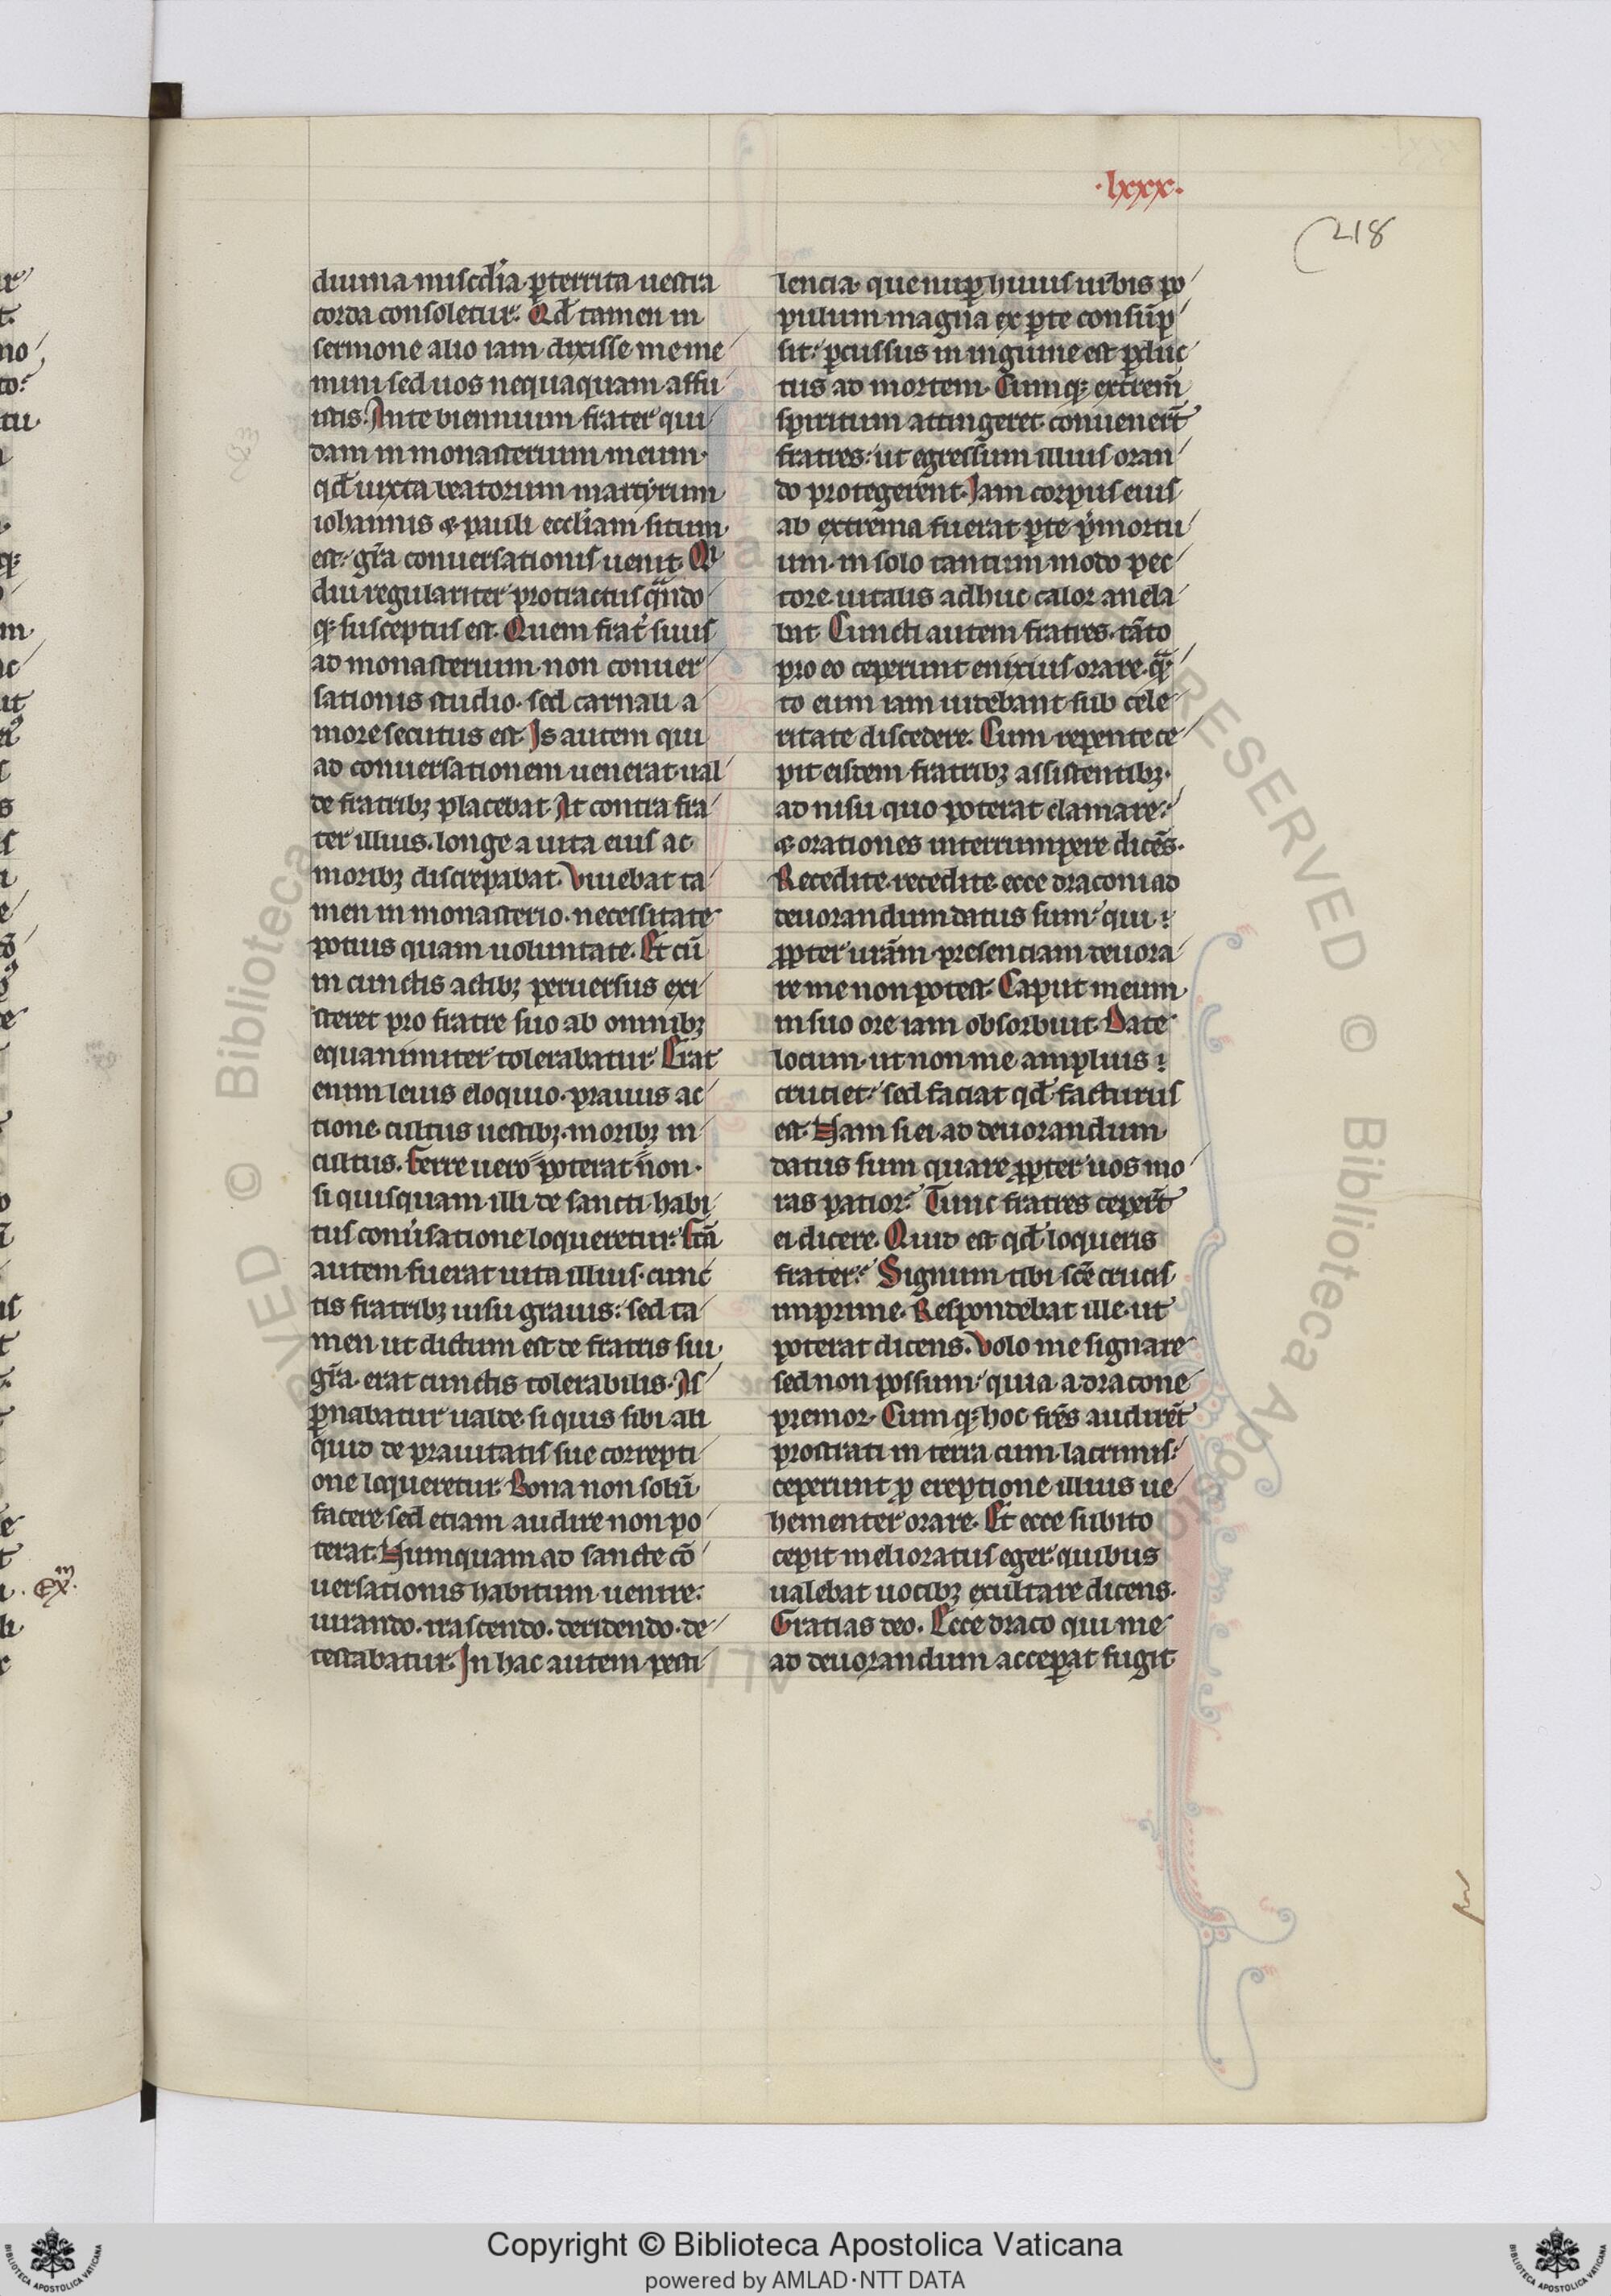 ·lxxx·
218
diuina misc̄dia pterrita uestra
corda consoletur. Qđ tamen in
sermone alio iam dixisse me me
mini sed uos nequaquam affu
istis. Ante biennium frater qui
dam in monasterium meum.
qđ iuxta beatorum martyrum
iohannis & pauli eccl̄iam situm
est. gr̄a conuersationis uenit. Qi
diu regulariter protractus q̄ndo
q; susceptus est. Quem frat̄ suus
ad monasterium. non conuer
sationis studio. sed carnali a
more secutus est. Is autem qui
ad conuersationem uenerat. ual
de fratrib; placebat. At contra fra
ter illius. longe a uita eius ac
morib; discrepabat. Viuebat ta
men in monasterio. necessitate
potius quam uoluntate. Et cū
in cunctis actib; peruersus exi
steret pro fratre suo ab omnib;
equanimiter tolerabatur. Erat
enim leuis eloquio. prauus ac
tione. cultus uestib;. morib; in
cultus. Ferre uero poterat non.
si quisquam illi de sancti habi
tus conu̅satione loqueretur. Fc̄a
autem fuerat uita illius. cunc
tis fratrib; uisu grauis: sed ta
men ut dictum est de fratris sui
gr̄a. erat cunctis tolerabilis. As
pnabatur ualde. si quis sibi ali
quid de prauitatis sue correpti
one loqueretur. Bona non solū
facere sed etiam audire non po
terat. Numquam ad sancte cō
uersationis habitum uenire.
iurando. irascendo. deridendo. de
testabatur. In hac autem pesti
lencia. que nup huius urbis po
pulum magna ex pte consūp
sit. pcussus in inguine est pduc
tus ad mortem. Cumq; extremū
spiritum attingeret. conuener̄t
fratres. ut egressum illius oran
do protegerent. Iam corpus eius
ab extrema fuerat pte p̄mortu
um. in solo tantum modo pec
tore. uitalis adhuc calor anela
bat. Cuncti autem fratres. tāto
pro eo ceperunt enixius orare. q̄
to eum iam uidebant sub cele
ritate discedere. Cum repente ce
pit eisdem fratrib; assistentib;.
ad nisu quo poterat clamare.
& orationes interrumpere dicēs.
Recedite. recedite. ecce draconi ad
deuorandum datus sum. qui
ppter urām presenciam deuora
re me non potest. Caput meum
in suo ore iam obsorbuit. Date
locum. ut non me amplius
cruciet. sed faciat qđ facturus
est. Nam si ei ad deuorandum
datus sum quare ppter uos mo
ras patior. Tunc fratres ceper̄t
ei dicere. Quid est qđ loqueris
frater. Signum tibi sc̄e crucis
imprime. Respondebat ille. ut
poterat dicens. Volo me signare
sed non possum. quia a dracone
premor. Cum q; hoc frēs audirēt
prostrati in terra cum lacrimis.
ceperunt p ereptione illius ue
hementer orare. Et ecce subito
cepit melioratus eger. quibus
ualebat uocib; exultare dicens.
Gratias deo. Ecce draco qui me
ad deuorandum acceperat fugit
Copyright © Biblioteca Apostolica Vaticana
powered by AMLAD·NTT DATA